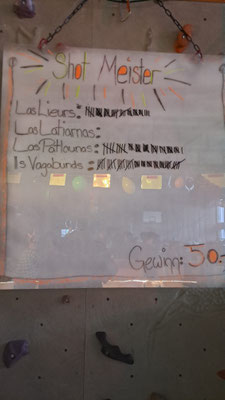 Shot Meister
Los Lieurs:
Los Latiarnas:
Los Patlounas:
Is Vagabunds:
Gewinn: 50.-